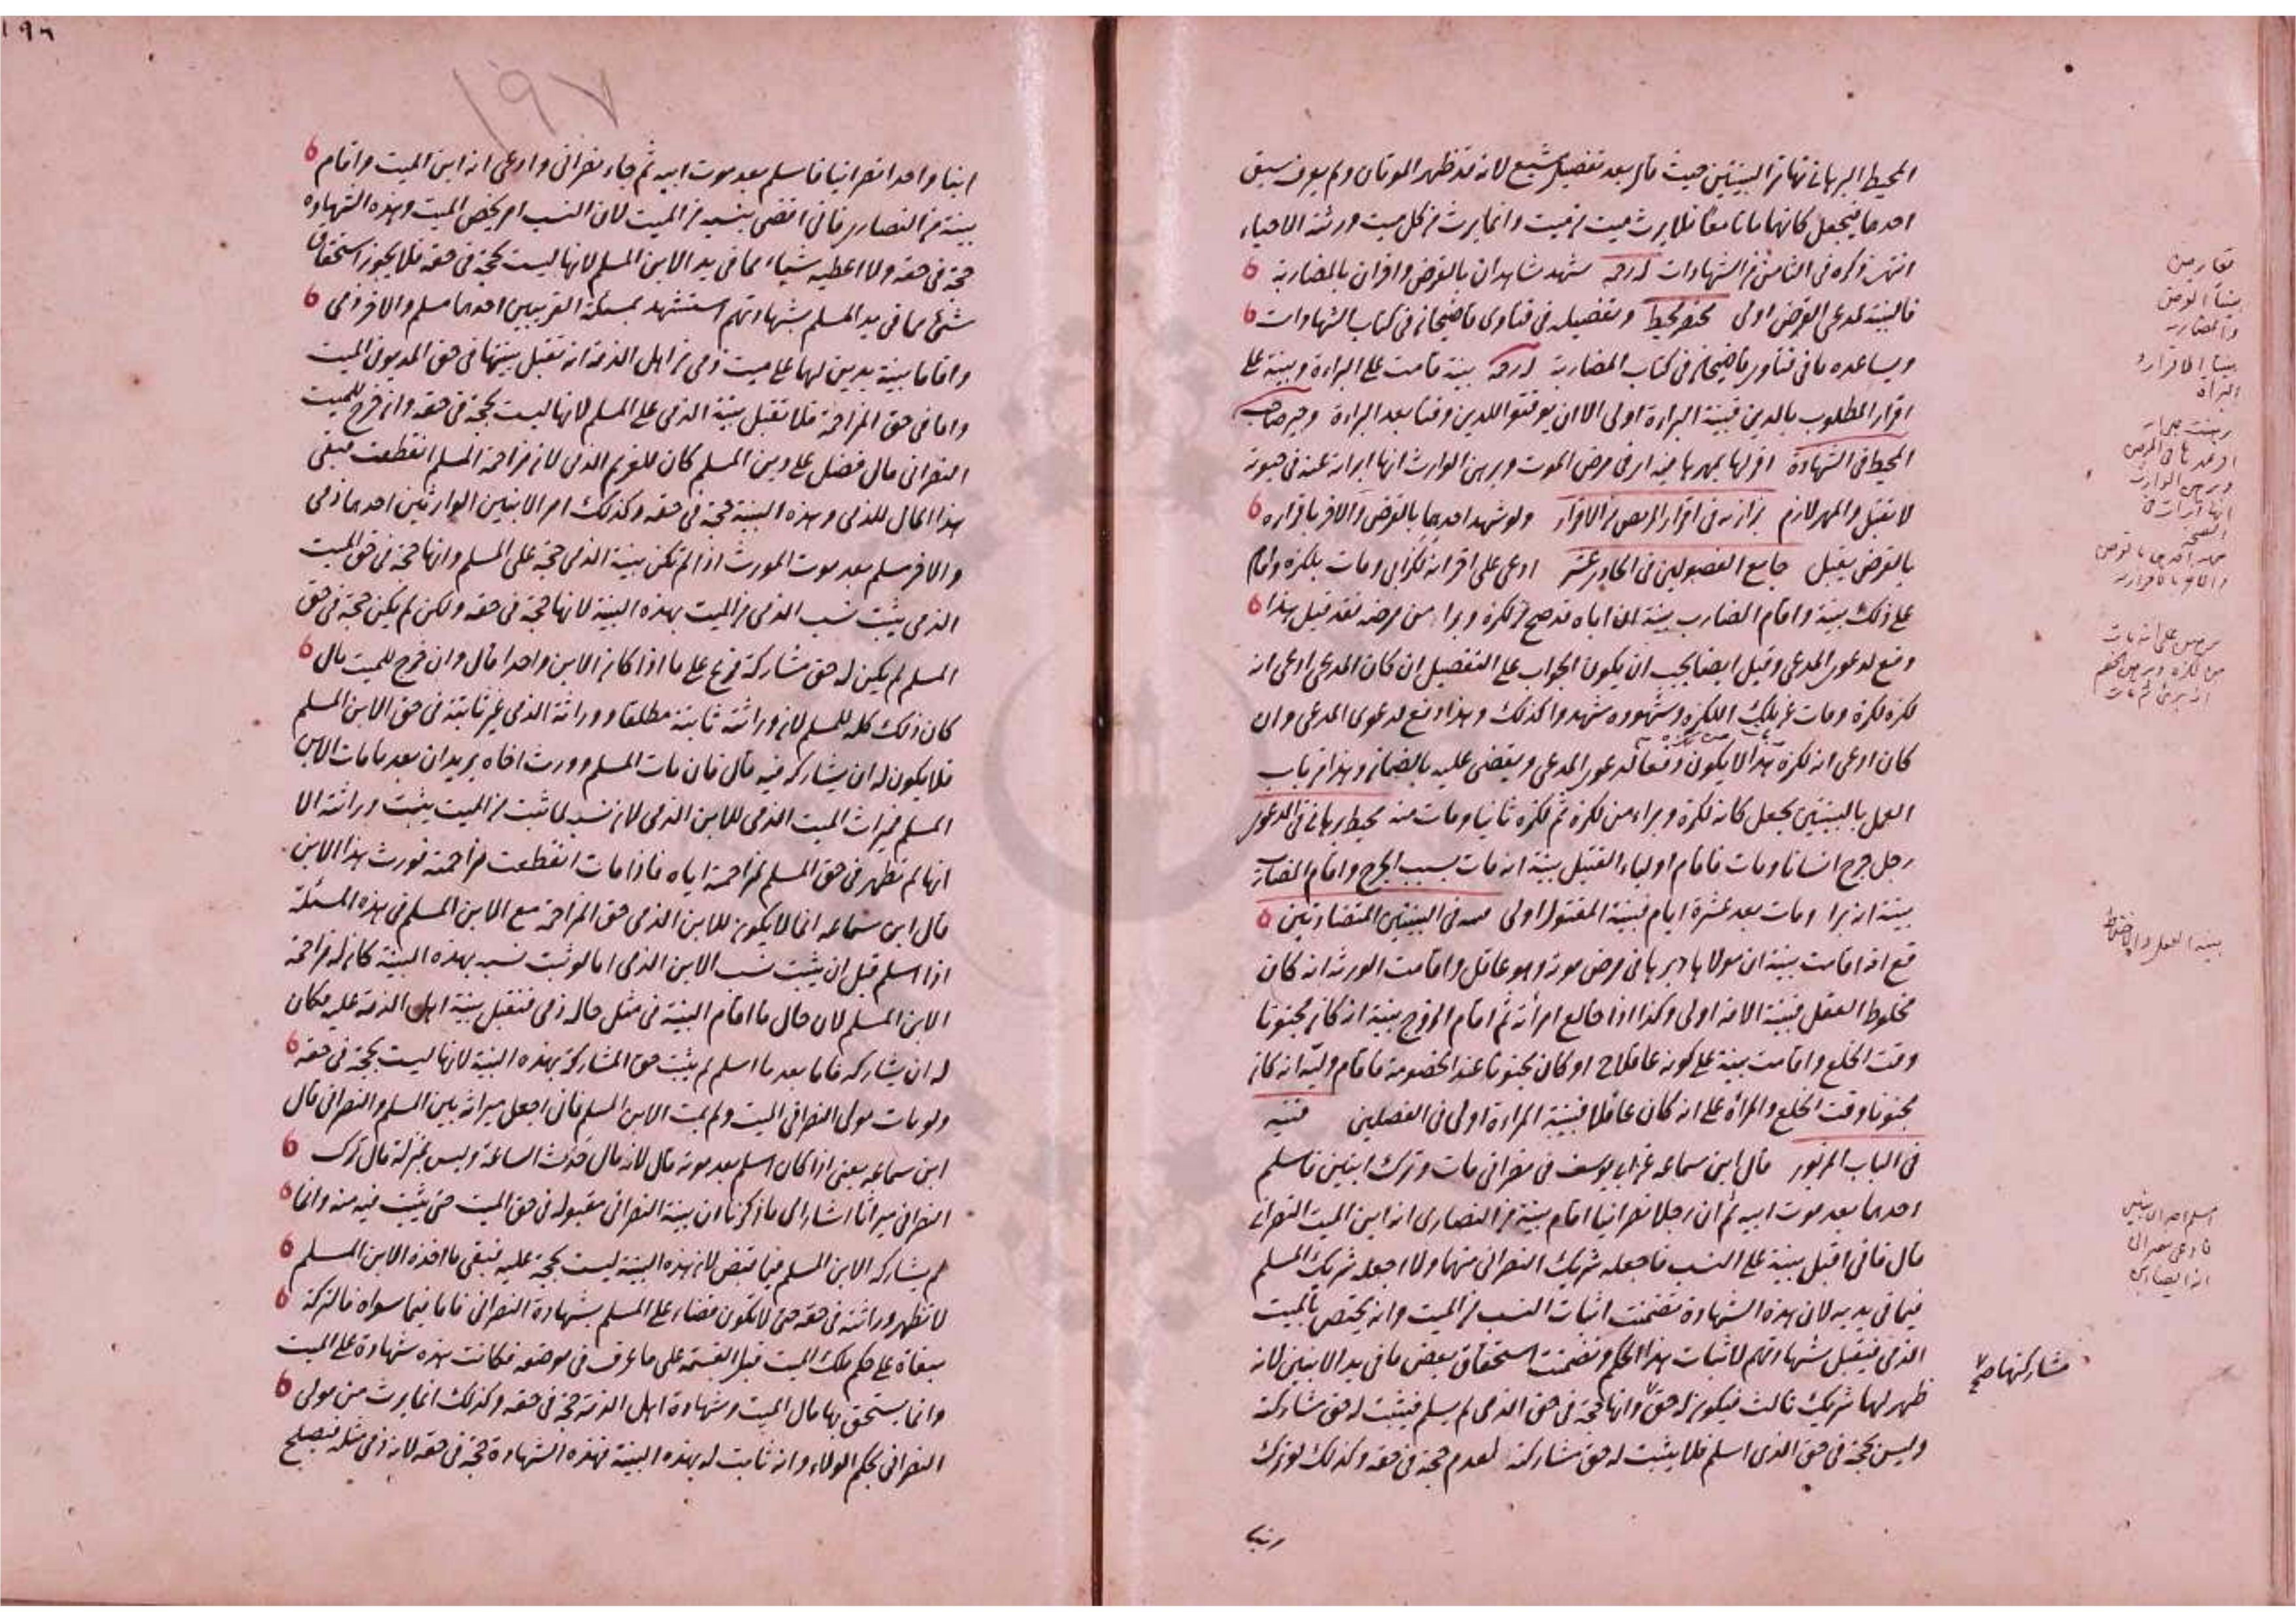 المحيط البرهاني تهاتر البينتين حيث قال بعد تفصيل شيع لانه قد ظهر الموتان ولم يعرف سبق
احدهما فيجعل كانهما ماتا معا فلا يرث ميت من ميت وانما يرث من كل ميت ورثته الاحياء
انتهى ذكره في الثامن من الشهادات شهد شاهدان بالقرض واخران بالمضاربة
فالبينة لمدعى القرض اولى وتفصيله في فتاوى قاضيخان في كتاب الشهادات
ويساعده ما في فتاوى قاضيخان في كتاب المضاربة بينة قامت على البراءة وبينة على
اقرار المطلوب بالدين فبينة البراءة اولى الا ان يوقتوا للدين وقتا بعد البراءة
المحيط في الشهادة اقر لها بمهرها فيه اي في مرض الموت وبرهن الوارث انها ابراته عنه في حيوته
لا يقبل والمهر لازم بزازيه في اقرار المريض من الاقرار ولو شهد احدهما بالقرض والاخر باقراره
بالقرض يقبل جامع الفصولين في الحادي عشر ادعى على اخر انه لكزابي ومات بلكزه واقام
على ذلك بينة واقام الضارب بينة ان اباه قد صح من لكزه وبرا من مرضه فقد قيل هذا
دفع لدعوى المدعى وقيل ايضا يجب ان يكون الجواب على التفصيل ان كان المدعى ادعى انه
لكزه لكزة ومات من تلك اللكزه وشهوده شهدوا كذلك وهذا دفع لدعوى المدعى وان
كان ادعى انه لكزه هذا لا يكون دفعا لدعوى المدعى ويقضى عليه بالضمان وهذا من باب
العمل بالبينتين يجعل كانه لكزه وبراء من لكزه ثم لكزه ثانيا ومات منه محيط برهاني في الدعوى
رجل جرح انسانا ومات فاقام اولياء القتيل بينة انه مات بسبب الجرح واقام الضارب
بينة انه برا ومات بعد عشرة ايام فبينة المقتول اولى في البينتين المتضادتين
امة اقامت بينة ان مولاها دبرها في مرض موته وهو عاقل واقامت الورثه انه كان
مخلوط العقل فبينة الامة اولى وكذا اذا خالع امرأته ثم اقام الزوج بينة انه كان مجنونا
وقت الخلع واقامت بينة على كونه عاقلا ح او كان مجنونا عند الخصومة فاقام وليه انه كان
مجنونا وقت الخلع والمرأة على انه كان عاقلا فبينة المراءة اولى في الفصلين قنيه
في الباب المزبور قال ابن سماعه عن ابي يوسف في نصراني مات وترك ابنين فاسلم
احدهما بعد موت ابيه ثم ان رجلا نصرانيا اقام بينة من النصارى انه ابن الميت النصراني
قال فاني اقبل بينة على النسب فاجعله شريك النصراني منهما ولا اجعله شريك المسلم
فيما في يديه لان هذه الشهادة تضمنت اثبات النسب من الميت وانه يختص بالميت
الذمى فيقبل شهادتهم لاثبات هذا الحكم وتضمنت استحقاق بعض ما في يد الابنين لانه
ظهر لهما شريك ثالث فيكون له حق وانها حجة في حق الذمى لم يسلم فيثبت له حق مشاركته
وليس بحجة في حق الذى اسلم فلا يثبت له حق مشاركته لعدم حجة في حقه وكذلك لو ترك
تعارض
بينة القرض
والمضاربه
بينة الاقرار و
البراة
مشاركتهما صح
اسلم احد الابنين
فادعى نصراني
انه ايضا ابن
١٩٦
١٩٧
ابنا واحدا نصرانيا فاسلم بعد موت ابيه ثم جاء نصراني وادعى انه ابن الميت واقام
بينة من النصارى فاني اقضى بنسبه من الميت لان النسب امر يخص الميت وهذه الشهادة
حجة في حقه ولا اعطيه شياء مما في يد الابن المسلم لانها ليست بحجة في حقه فلا يجوز استحقاق
شئ مما في يد المسلم بشهادتهم استشهد بمسئلة الغريمين احدهما مسلم والاخر ذمى
واقاما بينة بدين لهما على ميت ذمى من اهل الذمة انه تقبل بينتهما في حق المديون الميت
واما في حق المزاحمة فلا تقبل بينة الذمى على المسلم لانها ليست بحجة في حقه وان خرج للميت
النصراني مال فضل على دين المسلم كان للغريم الذمى لان مزاحمة المسلم انقطعت فبقى
هذا المال للذمى وهذه البينة حجة في حقه وكذلك امر الابنين الوارثين احدهما ذمى
والاخر مسلم بعد موت المورث اذا لم تكن بينة الذمى حجة على المسلم وانها حجة في حق الميت
الذمى يثبت نسب الذمى من الميت بهذه البينة لانها حجة في حقه ولكن لم يكن حجة في حق
المسلم لم يكن له حق مشاركة فرع على ما اذا كان الابن واحدا قال وان خرج للميت مال
كان ذلك كله للمسلم لان وراثته ثابتة مطلقا ووراثة الذمى غير ثابتة في حق الابن المسلم
فلا يكون له ان يشاركه فيه قال فان مات المسلم وورث اخاه يريد ان بعد ما مات الابن
المسلم ميراث الميت الذمى للابن الذمى لان نسبه لما ثبت من الميت يثبت وراثته الا
انها لم تظهر في حق المسلم لمزاحمة اياه فاذا مات انقطعت مزاحمته فورث هذا الابن
قال ابن سماعه انما لا يكون للابن الذمى حق المزاحمة مع الابن المسلم في هذه المسئلة
اذا اسلم قبل ان يثبت نسب الابن الذمى اما لو ثبت نسبه بهذه البينة كان له مزاحمة
الابن المسلم لان حال ما اقام البينة في مثل حاله ذمى فتقبل بينة اهل الذمة عليه فكان
له ان يشاركه فاما بعد ما اسلم لم يثبت حق المشاركة بهذه البينة لانها ليست بحجة في حقه
ولو مات مولى النصراني الميت ولم يمت الابن المسلم فاني اجعل ميراثه بين المسلم والنصراني قال
ابن سماعه يعني اذا كان اسلم بعد موته قال لانه مال حدث الساعة وليس بمنزلة مال ترك
النصراني ميراثا اشار الى ما ذكرنا ان بينة النصراني مقبوله في حق الميت حتى يثبت نسبه منه وانما
لم يشاركه الابن المسلم فيما قبض لان هذه البينة ليست بحجة عليه فبقى ما اخذه الابن المسلم
لا تظهر وراثته في حقه حتى لا تكون قضاء على المسلم بشهادة النصراني فاما فيما سواه فالتركة
مبقاة على حكم ملك الميت قبل القسمة على ما عرف في موضعه فكانت هذه شهادة على الميت
وانما يستحق بها مال الميت وشهادة اهل الذمة حجة في حقه وكذلك انما يرث من مولى
النصراني بحكم الولاء وانه ثابت له بهذه البينة فهذه الشهادة حجة في حقه لانه ذمى مثله فيصلح